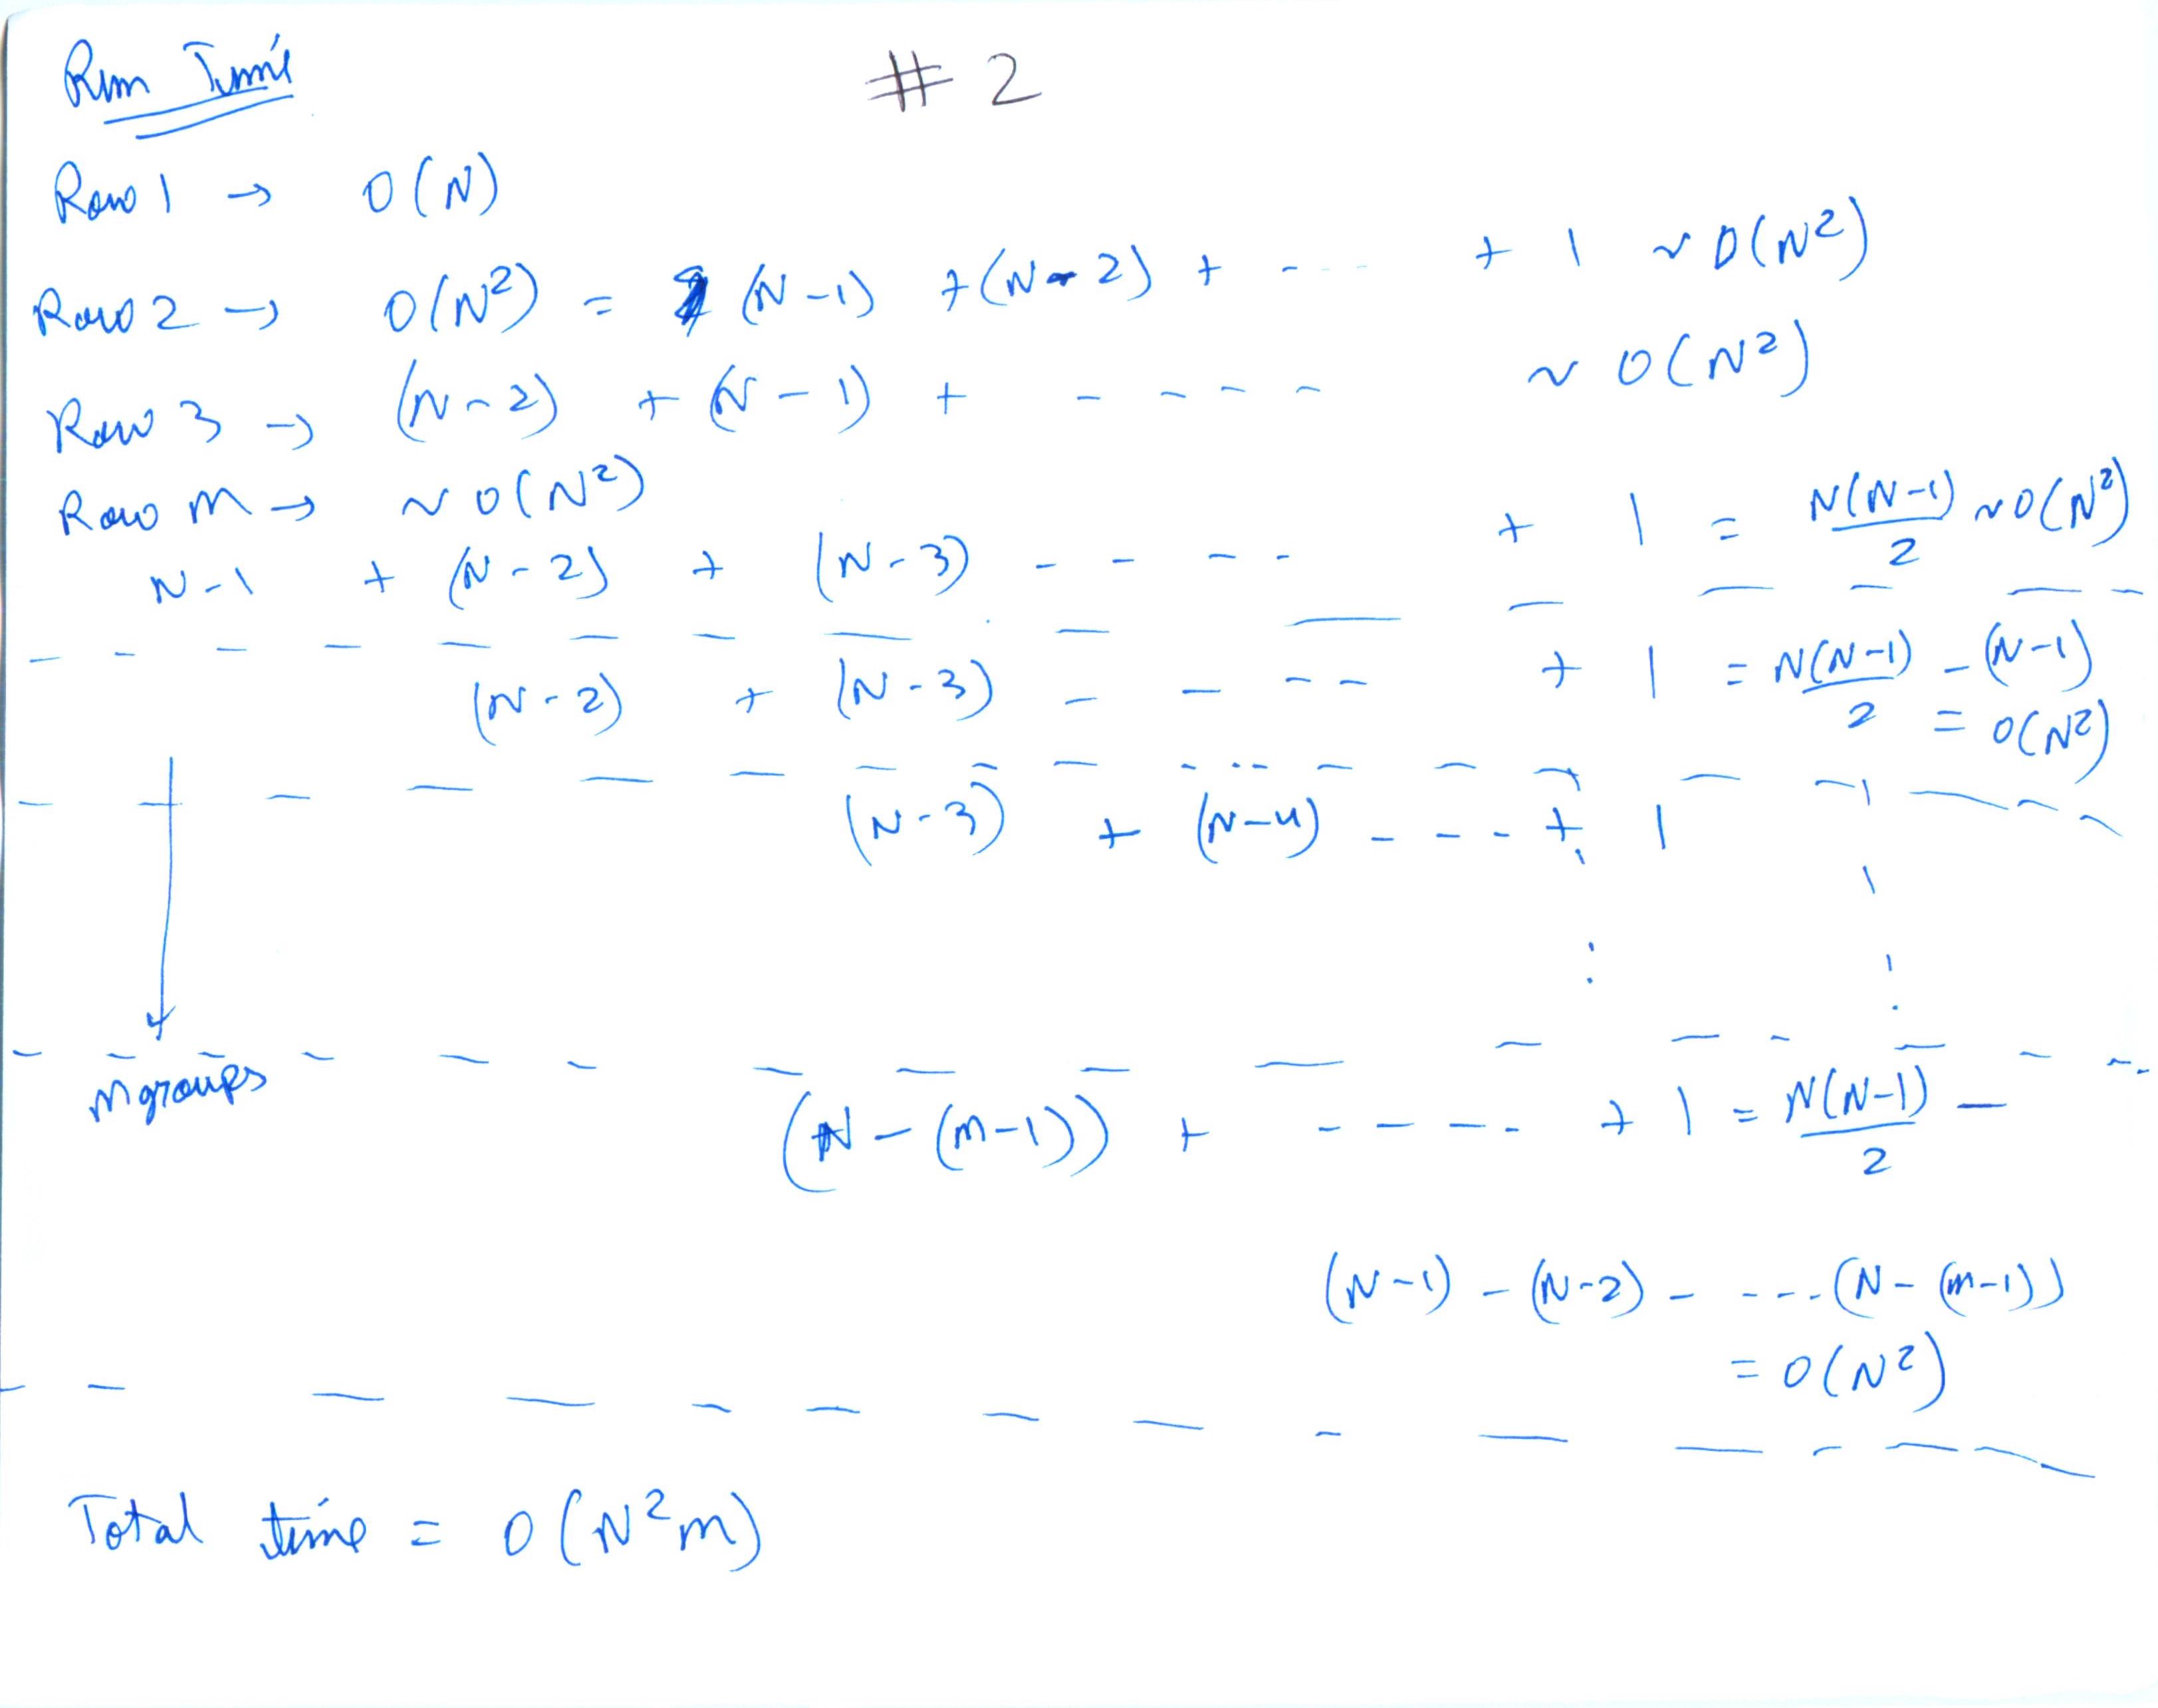 Run Time # 2
Row 1 → O(N)
Row 2 → O(N²) = (N-1) + (N-2) + - - - - + 1 ~ O(N²)
Row 3 → (N-2) + (N-1) + - - - - ~ O(N²)
Row m → ~ O(N²)
N-1 + (N-2) + (N-3) - - - - + 1 = N(N-1)/2 ~ O(N²)
(N-2) + (N-3) - - - - + 1 = N(N-1)/2 - (N-1)
= O(N²)
(N-3) + (N-4) - - - + 1
m groups
(N-(m-1)) + - - - - - + 1 = N(N-1)/2 -
(N-1) - (N-2) - - - - . (N-(m-1))
= O(N²)
Total time = O(N²m)